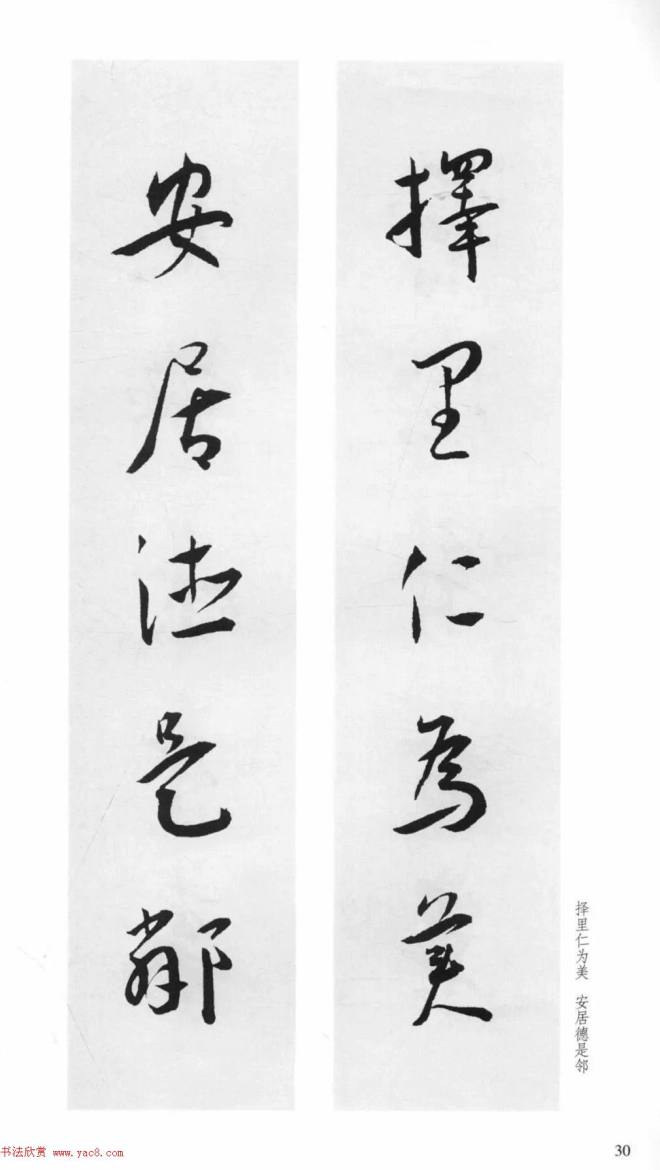 擇里仁為美
安居德是鄰
择里仁为美 安居德是邻
30
书法欣赏 www.yac8.com